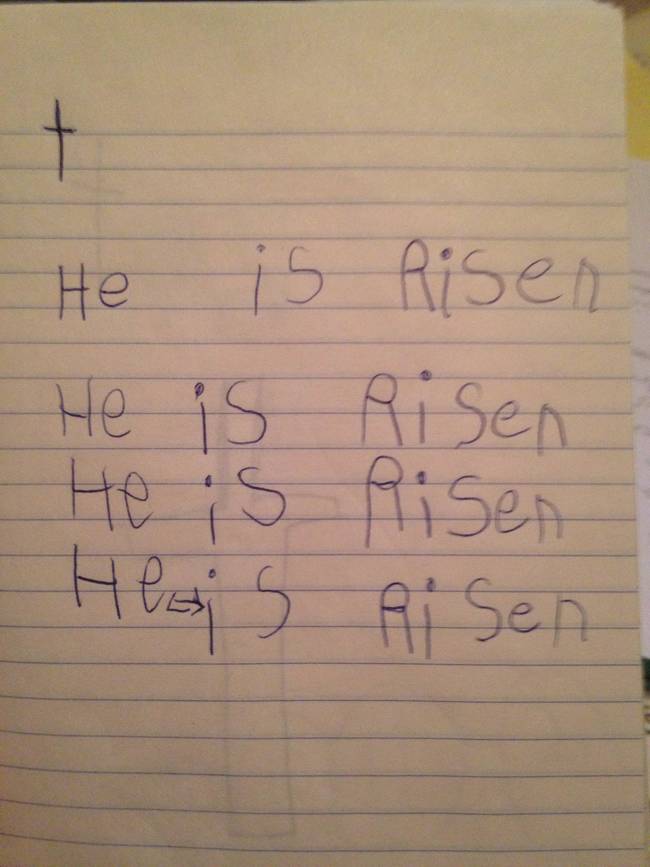 He is Risen
He is Risen
He is Risen
He is Risen